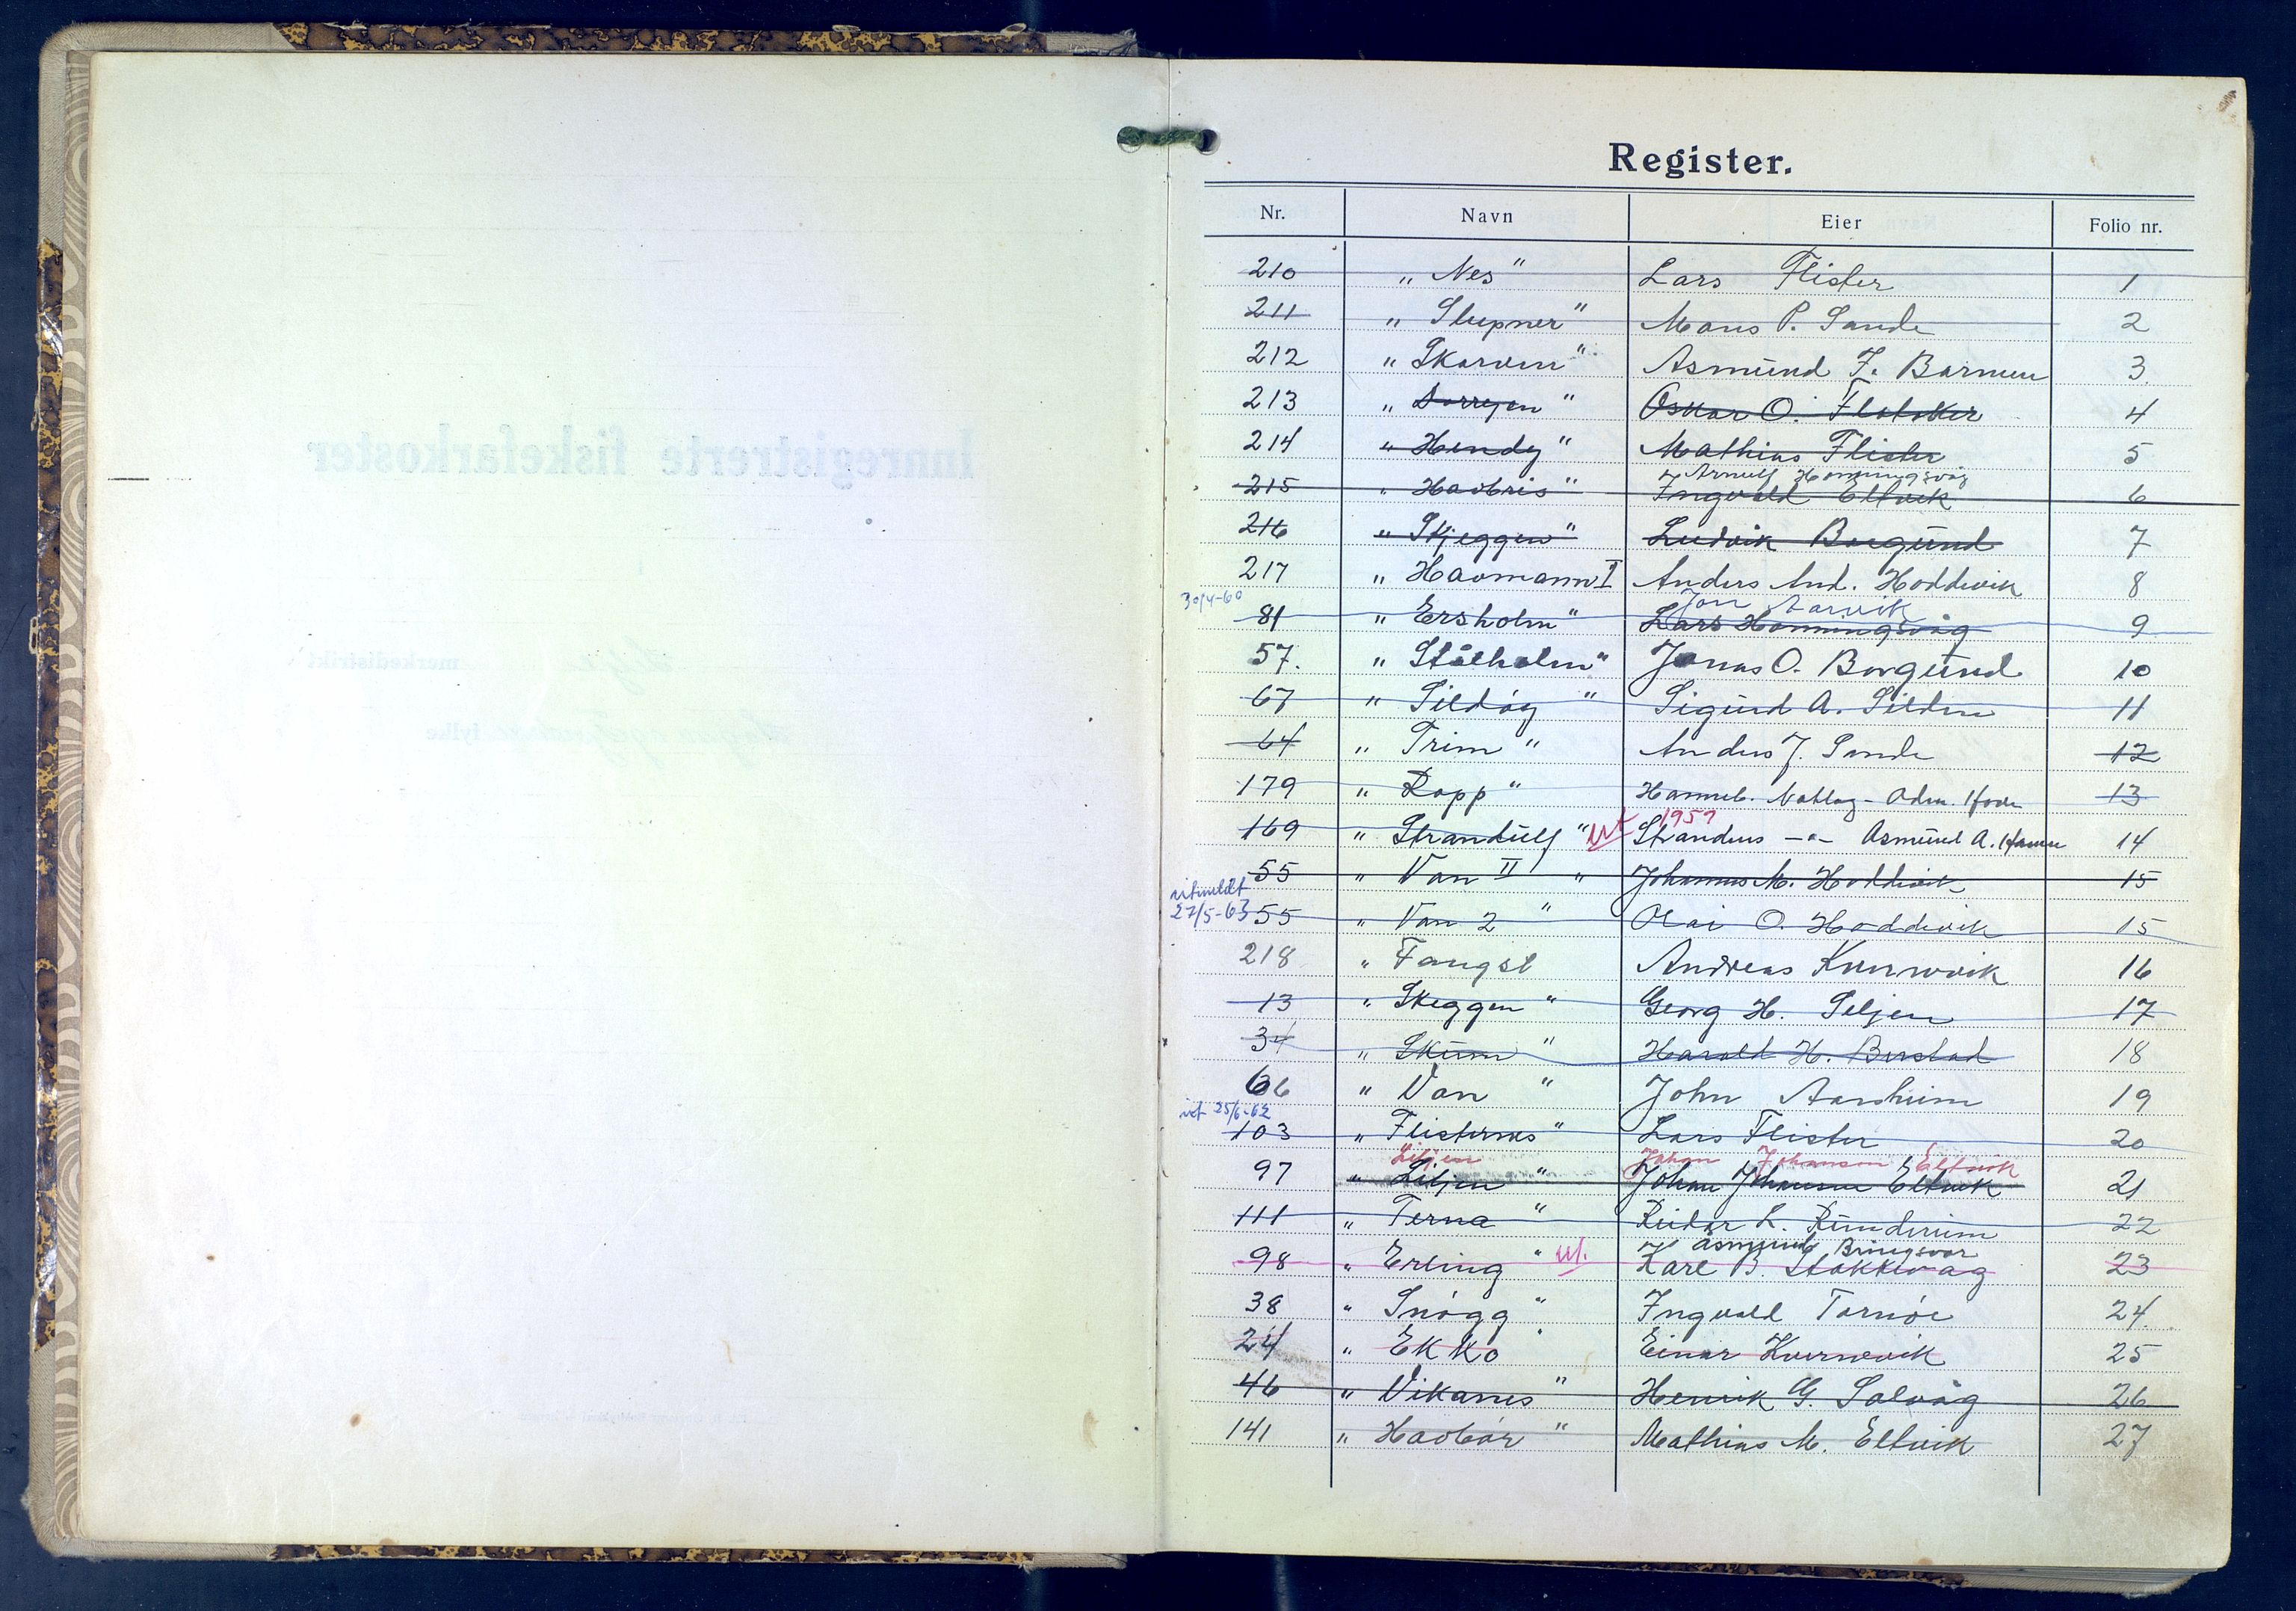 Register.
Nr. Navn Eier Folio nr.
210 „ Nes " Lars Flister 1
211 „ Sleipner " Mons P. Sande 2
212 „ Skarven " Asmund J. Barmen 3
213 „ " Oskar O. Flotaker 4
214 „ Hendy " Mathias Flister 5
Arnulf Honningsvåg
215 „ Havbris " Ingvald Eltvik 6
216 „ Skjeggen " Ludvik Borgund 7
217 „ Havmann I Anders And. Hoddevik 8
30/4-60 Jon Aarvik
81 „ Ersholm " Lars Honningsvåg 9
57. „ Stålholm " Jonas O. Borgund 10
67 „ Sildøy " Sigurd A. Silden 11
64 „ Trim " Anders J. Sande 12
179 „ Rapp " Hanneb. Notlag - Odm. 13
169 „ Strandulf " ut 1959 Strandens -"- Asmund A. 14
55 „ Van II " Johannes M. Hoddevik 15
utmeldt
27/5-63 55 „ Van 2 " Olai O. Hoddevik 15
218 „ Fangst Andreas Kvernvik 16
13 „ Skeggen " Georg H. Seljen 17
34 „ Skum " Harald H. Berstad 18
66 „ Van " John Aarsheim 19
ut 25/6-62
103 „ Flisternes " Lars Flister 20
Liljen Johan Johanson Eltvik
97 „ Liljen " Johan Johansen Eltvik 21
111 „ Terna " Reidar L. Rundereim 22
Åsmund Bringsvor
98 „ Erling " ut. Kåre B. Stokkevåg 23
38 „ Snøgg " Ingvald Tornøe 24.
24 „ Ekko " Einar Kvernevik 25
46 „ Vikanes " Henrik G. Salvåg 26
141 „ Havbår " Mathias M. Eltvik 27
Innregistrerte fiskefarkoster
merkedistrikt
fylke